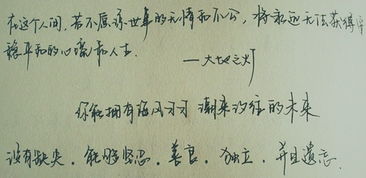 在这个人间,若不原谅世事的无情和不公,将永远无法获得
稳平和的心境和人生.
——大地之灯
你能拥有海风习习 潮来汐往的未来
没有缺失.能够坚忍.善良.独立.并且遗忘.